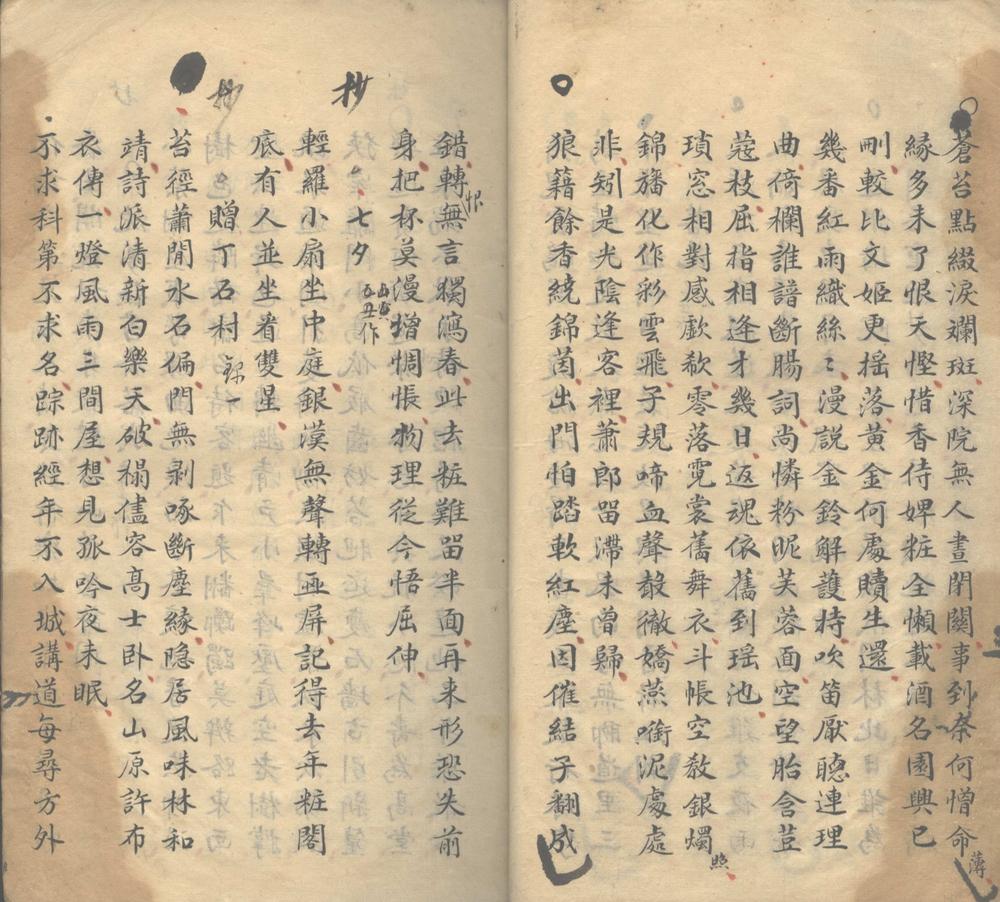 蒼苔點綴淚斕斑深院無人晝閉關事到奈何憎命薄
緣多未了恨天慳惜香侍婢粧全懶載酒名園興已
刪較比文姬更搖落黃金何處贖生還
幾番紅雨織絲〻漫說金鈴解護持吹笛厭聽連理
曲倚欄誰譜斷腸詞尚憐粉昵芙蓉面空望胎含荳
蔻枝屈指相逢才幾日返魂依舊到瑶池
瑣窓相對感歔欷零落霓裳舊舞衣斗帳空教銀燭照
錦旛化作彩雲飛子規啼血聲聲徹嬌燕銜泥處處
非矧是光陰逢客裡蕭郎留滯未曾歸
狼籍餘香繞錦茵出門怕踏軟紅塵因催結子翻成
錯轉恨無言獨瀉春此去粧難留半面再来形恐失前
身把杯莫漫增惆悵物理從今悟屈伸
抄
七夕
作
輕羅小扇坐中庭銀漢無聲轉畫屏記得去年粧閣
底有人並坐看雙星
抄
贈丁石村 錄一
苔徑蕭閒水石偏門無剥啄斷塵緣隐居風味林和
靖詩派清新白樂天破榻儘容高士卧名山原許布
衣傳一燈風雨三間屋想見孤吟夜未眠
不求科第不求名踪跡經年不入城講道每尋方外